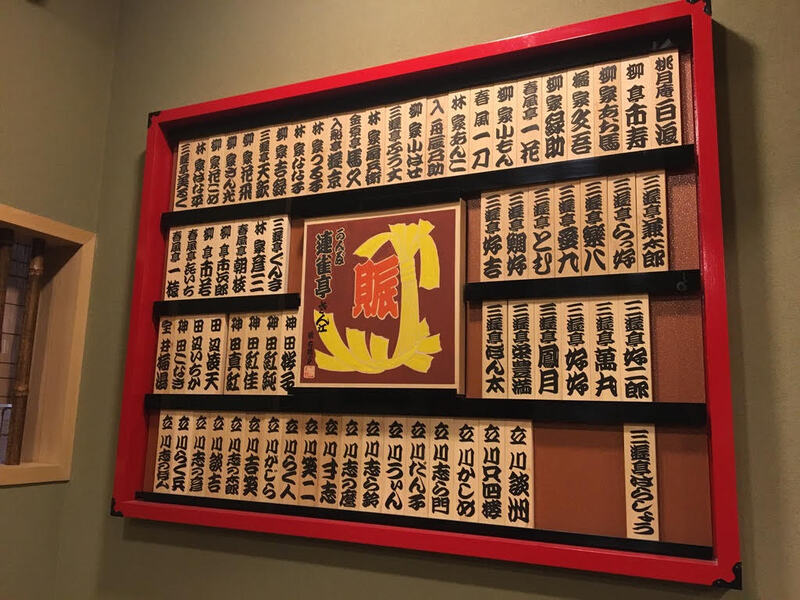 桃月庵白浪
柳亭市寿
柳家あお馬
橘家文吾
柳家緑助
春風亭一花
柳家小もん
春風一刀
林家あんこ
入舟辰乃助
柳家小はぜ
三遊亭ふう丈
林家扇兵衛
金原亭馬久
入船亭遊京
林家つる子
林家なな子
柳家吉緑
三遊亭天歌
柳家花飛
柳家さん光
柳家花ごめ
林家はな平
三遊亭美るく
三遊亭兼太郎
三遊亭らっ好
三遊亭楽八
三遊亭愛九
三遊亭とむ
三遊亭鯛好
三遊亭好吉
賑
らくご
連雀亭さん江
三遊亭ぐんま
林家彦三
春風亭朝枝
柳亭市次郎
柳亭市若
春風亭㐂いち
春風亭一猿
三遊亭好二郎
三遊亭萬丸
三遊亭好好
三遊亭鳳月
三遊亭栄豊満
三遊亭ぽん太
神田桜子
神田紅純
神田紅佳
神田真紅
田辺凌天
田辺いちか
神田こなぎ
宝井梅湯
三遊亭はらしょう
立川談州
立川只四楼
立川かしめ
立川志ら門
立川だん子
立川うぃん
立川志ら鈴
立川志の麿
立川寸志
立川笑二
立川らく人
立川がじら
立川吉笑
立川志の太郎
立川談吉
立川志の彦
立川らく兵
立川志のぽん